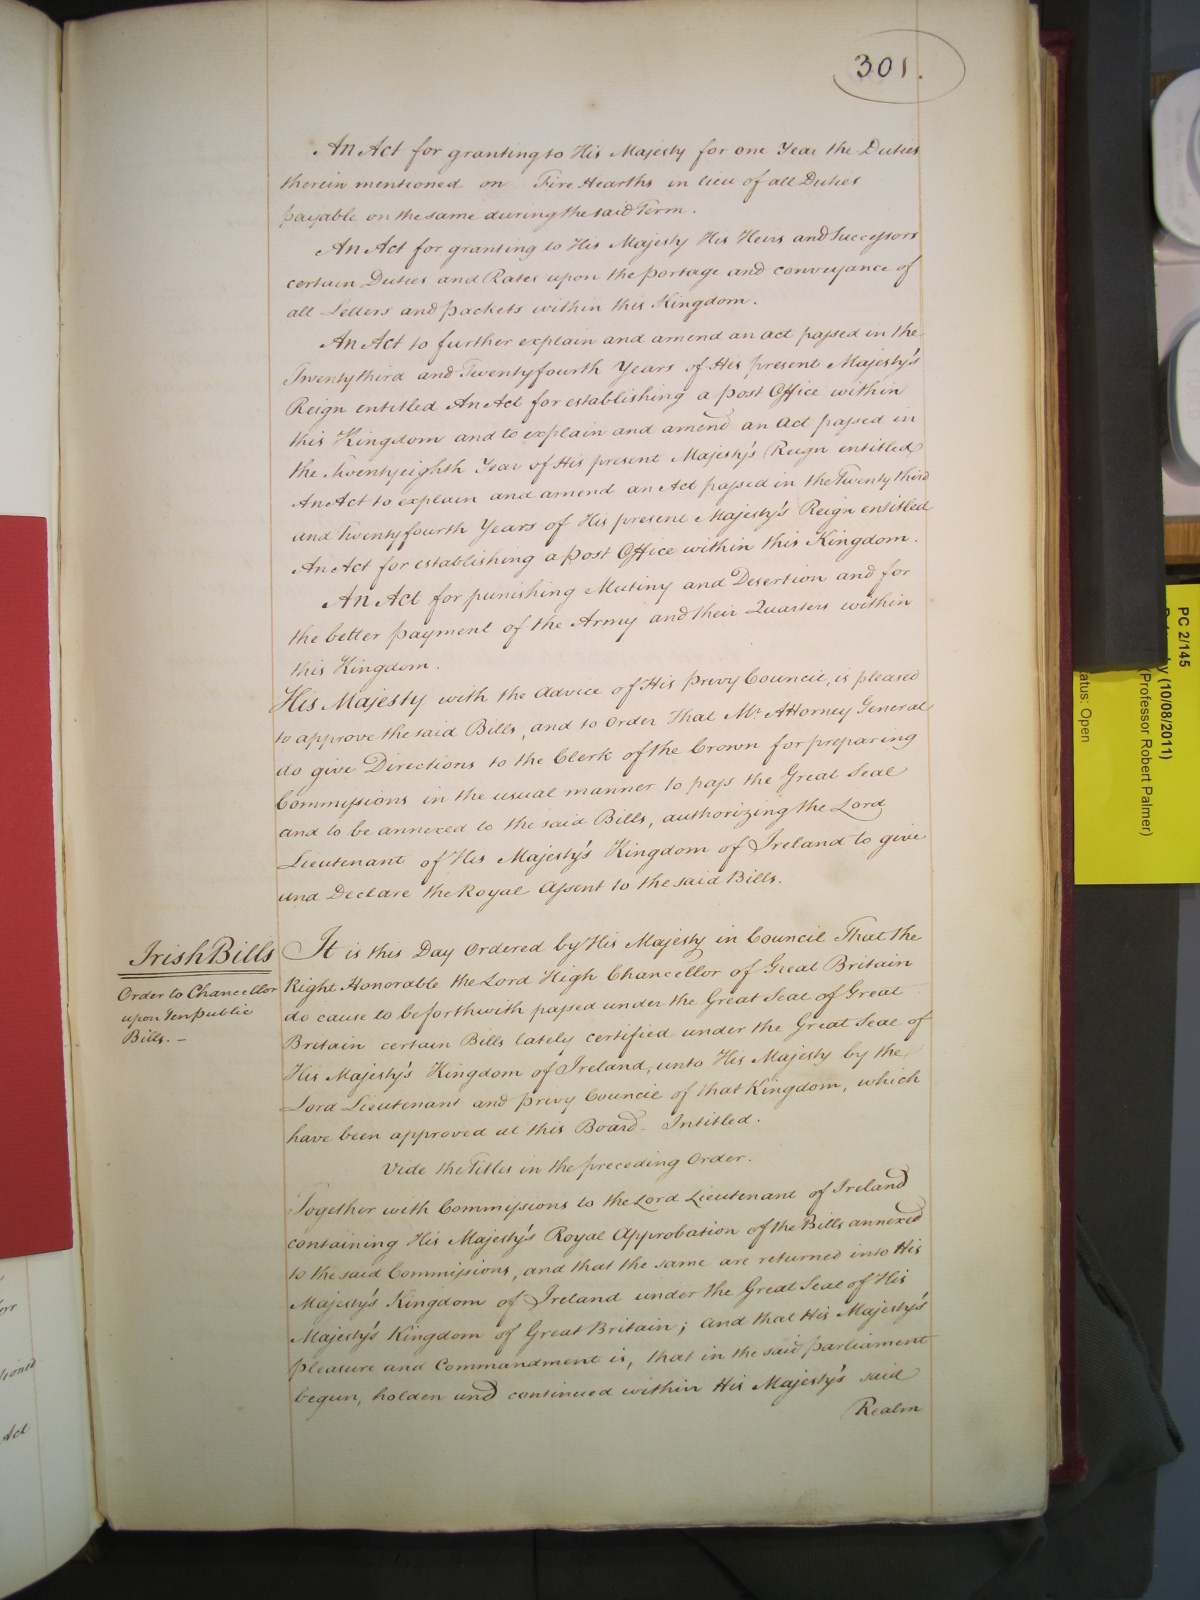 301.
An Act for granting to His Majesty for one Year the Duties
therein mentioned on Fire Hearths in lieu of all Duties
payable on the same during the said Term.
An Act for granting to His Majesty His Heirs and Successors
certain Duties and Rates upon the portage and conveyance of
all Letters and packets within this Kingdom.
An Act to further explain and amend an act passed in the
Twenty third and Twenty fourth Years of His present Majesty's
Reign entitled An Act for establishing a post Office within
this Kingdom and to explain and amend an act passed in
the twenty eighth Year of His present Majesty's Reign entitled
An Act to explain and amend an Act passed in the Twenty third
and twenty fourth Years of His present Majesty's Reign entitled
An Act for establishing a post Office within this Kingdom.
An Act for punishing Mutiny and Desertion and for
the better payment of the Army and their Quarters within
this Kingdom.
His Majesty with the advice of His privy Council, is pleased
to approve the said Bills, and to order That Mr. Attorney General
do give Directions to the Clerk of the Crown for preparing
Commissions in the usual manner to pass the Great Seal
and to be annexed to the said Bills, authorizing the Lord
Lieutenant of His Majesty's Kingdom of Ireland to give
and Declare the Royal Assent to the said Bills.
Irish Bills
Order to Chancellor
upon Ten public
Bills. -
It is this Day Ordered by His Majesty in Council That the
Right Honorable the Lord High Chancellor of Great Britain
do cause to be forthwith passed under the Great Seal of Great
Britain certain Bills lately certified under the Great Seal of
His Majesty's Kingdom of Ireland, unto His Majesty by the
Lord Lieutenant and privy Council of that Kingdom, which
have been approved at this Board - Intitled.
Vide the Titles in the preceding Order.
Together with Commissions to the Lord Lieutenant of Ireland
containing His Majesty's Royal Approbation of the Bills annexed
to the said Commissions, and that the same are returned into His
Majesty's Kingdom of Ireland under the Great Seal of His
Majesty's Kingdom of Great Britain; and that His Majesty's
pleasure and Commandment is, that in the said parliament
begun, holden and continued within His Majesty's said
Realm
PC 2/145
(10/08/2011)
(Professor Robert Palmer)
atus: Open
Act